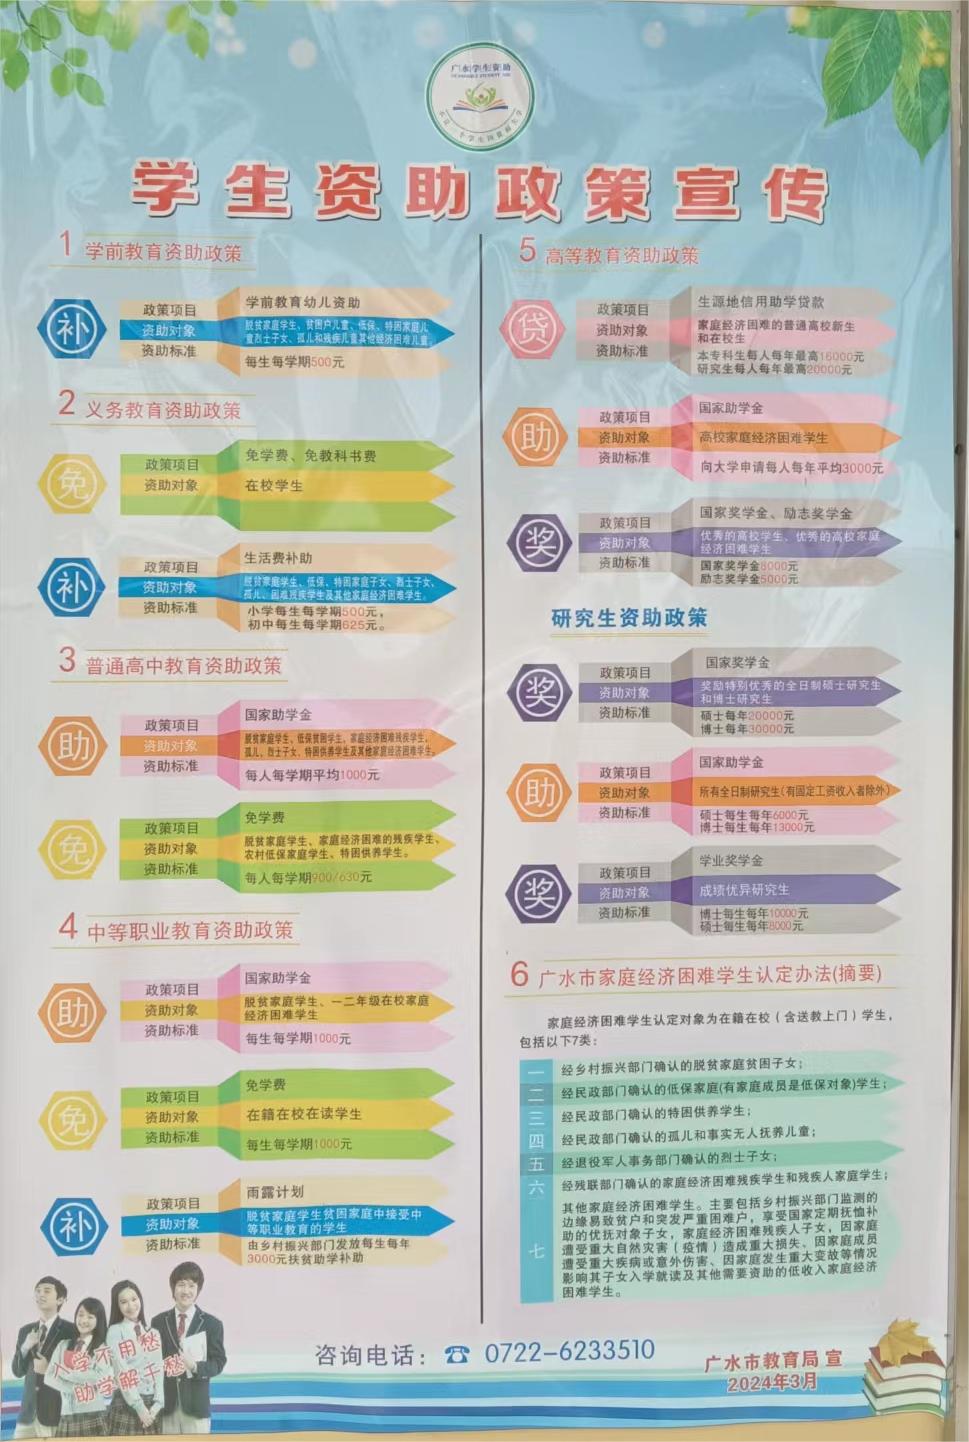 广水学生资助
学生资助政策宣传
1 学前教育资助政策
补
政策项目
学前教育幼儿资助
资助对象
脱贫家庭学生、贫困户儿童、低保、特困家庭儿
童烈士子女、孤儿和残疾儿童其他经济困难儿童。
资助标准
每生每学期500元
2 义务教育资助政策
免
政策项目
免学费、免教科书费
资助对象
在校学生
补
政策项目
生活费补助
资助对象
脱贫家庭学生、低保、特困家庭子女、烈士子女、
孤儿、困难残疾学生及其他家庭经济困难学生。
资助标准
小学每生每学期500元，
初中每生每学期625元。
3 普通高中教育资助政策
助
政策项目
国家助学金
资助对象
脱贫家庭学生、低保贫困学生、家庭经济困难残疾学生、
孤儿、烈士子女、特困供养学生及其他家庭经济困难学生。
资助标准
每人每学期平均1000元
免
政策项目
免学费
资助对象
脱贫家庭学生、家庭经济困难的残疾学生、
农村低保家庭学生、特困供养学生。
资助标准
每人每学期900/630元
4 中等职业教育资助政策
助
政策项目
国家助学金
资助对象
脱贫家庭学生、一二年级在校家庭
经济困难学生
资助标准
每生每学期1000元
免
政策项目
免学费
资助对象
在籍在校在读学生
资助标准
每生每学期1000元
补
政策项目
雨露计划
资助对象
脱贫家庭学生贫困家庭中接受中
等职业教育的学生
资助标准
由乡村振兴部门发放每生每年
3000元扶贫助学补助
5 高等教育资助政策
贷
政策项目
生源地信用助学贷款
资助对象
家庭经济困难的普通高校新生
和在校生
资助标准
本专科生每人每年最高16000元
研究生每人每年最高20000元
助
政策项目
国家助学金
资助对象
高校家庭经济困难学生
资助标准
向大学申请每人每年平均3000元
奖
政策项目
国家奖学金、励志奖学金
资助对象
优秀的高校学生、优秀的高校家庭
经济困难学生
资助标准
国家奖学金8000元
励志奖学金5000元
研究生资助政策
奖
政策项目
国家奖学金
资助对象
奖励特别优秀的全日制硕士研究生
和博士研究生
资助标准
硕士每年20000元
博士每年30000元
助
政策项目
国家助学金
资助对象
所有全日制研究生（有固定工资收入者除外）
资助标准
硕士每生每年6000元
博士每生每年13000元
奖
政策项目
学业奖学金
资助对象
成绩优异研究生
资助标准
博士每生每年10000元
硕士每生每年8000元
6 广水市家庭经济困难学生认定办法(摘要)
家庭经济困难学生认定对象为在籍在校（含送教上门）学生，
包括以下7类：
一 经乡村振兴部门确认的脱贫家庭贫困子女；
二 经民政部门确认的低保家庭(有家庭成员是低保对象)学生；
三 经民政部门确认的特困供养学生；
四 经民政部门确认的孤儿和事实无人抚养儿童；
五 经退役军人事务部门确认的烈士子女；
六 经残联部门确认的家庭经济困难残疾学生和残疾人家庭学生；
七 其他家庭经济困难学生。主要包括乡村振兴部门监测的
边缘易致贫户和突发严重困难户，享受国家定期抚恤补
助的优抚对象子女，家庭经济困难残疾人子女，因家庭
遭受重大自然灾害（疫情）造成重大损失、因家庭成员
遭受重大疾病或意外伤害、因家庭发生重大变故等情况
影响其子女入学就读及其他需要资助的低收入家庭经济
困难学生。
入学不用愁
助学解千愁
咨询电话：☎ 0722-6233510
广水市教育局 宣
2024年3月